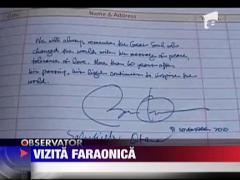 Name & Address
We will always remember the Great Soul who
changed the world with his message of peace,
tolerance and love. More than 60 years after
his passing, his light continues to inspire the
world.
9 November 2010
OBSERVATOR
VIZITĂ FARAONICĂ